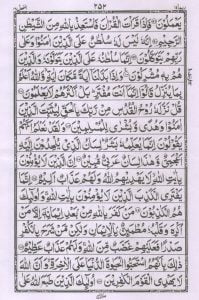 ۲۵۲
يَعْمَلُوْنَ فَاِذَا قَرَاْتَ الْقُرْاٰنَ فَاسْتَعِذْ بِاللّٰهِ مِنَ الشَّيْطٰنِ
الرَّجِيْمِ اِنَّهٗ لَيْسَ لَهٗ سُلْطٰنٌ عَلَى الَّذِيْنَ اٰمَنُوْا وَعَلٰى
رَبِّهِمْ يَتَوَكَّلُوْنَ اِنَّمَا سُلْطٰنُهٗ عَلَى الَّذِيْنَ يَتَوَلَّوْنَهٗ وَالَّذِيْنَ
هُمْ بِهٖ مُشْرِكُوْنَ وَاِذَا بَدَّلْنَاۤ اٰيَةً مَّكَانَ اٰيَةٍ وَّاللّٰهُ اَعْلَمُ
بِمَا يُنَزِّلُ قَالُوْۤا اِنَّمَاۤ اَنْتَ مُفْتَرٍ بَلْ اَكْثَرُهُمْ لَا يَعْلَمُوْنَ
قُلْ نَزَّلَهٗ رُوْحُ الْقُدُسِ مِنْ رَّبِّكَ بِالْحَقِّ لِيُثَبِّتَ الَّذِيْنَ
اٰمَنُوْا وَهُدًى وَّبُشْرٰى لِلْمُسْلِمِيْنَ وَلَقَدْ نَعْلَمُ اَنَّهُمْ
يَقُوْلُوْنَ اِنَّمَا يُعَلِّمُهٗ بَشَرٌ لِسَانُ الَّذِيْ يُلْحِدُوْنَ اِلَيْهِ
اَعْجَمِيٌّ وَّهٰذَا لِسَانٌ عَرَبِيٌّ مُّبِيْنٌ اِنَّ الَّذِيْنَ لَا يُؤْمِنُوْنَ
بِاٰيٰتِ اللّٰهِ لَا يَهْدِيْهِمُ اللّٰهُ وَلَهُمْ عَذَابٌ اَلِيْمٌ اِنَّمَا
يَفْتَرِي الْكَذِبَ الَّذِيْنَ لَا يُؤْمِنُوْنَ بِاٰيٰتِ اللّٰهِ وَاُولٰٓئِكَ
هُمُ الْكٰذِبُوْنَ مَنْ كَفَرَ بِاللّٰهِ مِنْ بَعْدِ اِيْمَانِهٖۤ اِلَّا مَنْ
اُكْرِهَ وَقَلْبُهٗ مُطْمَئِنٌّۢ بِالْاِيْمَانِ وَلٰكِنْ مَّنْ شَرَحَ بِالْكُفْرِ
صَدْرًا فَعَلَيْهِمْ غَضَبٌ مِّنَ اللّٰهِ وَلَهُمْ عَذَابٌ عَظِيْمٌ
ذٰلِكَ بِاَنَّهُمُ اسْتَحَبُّوا الْحَيٰوةَ الدُّنْيَا عَلَى الْاٰخِرَةِ وَاَنَّ اللّٰهَ
لَا يَهْدِي الْقَوْمَ الْكٰفِرِيْنَ اُولٰٓئِكَ الَّذِيْنَ طَبَعَ اللّٰهُ عَلٰى